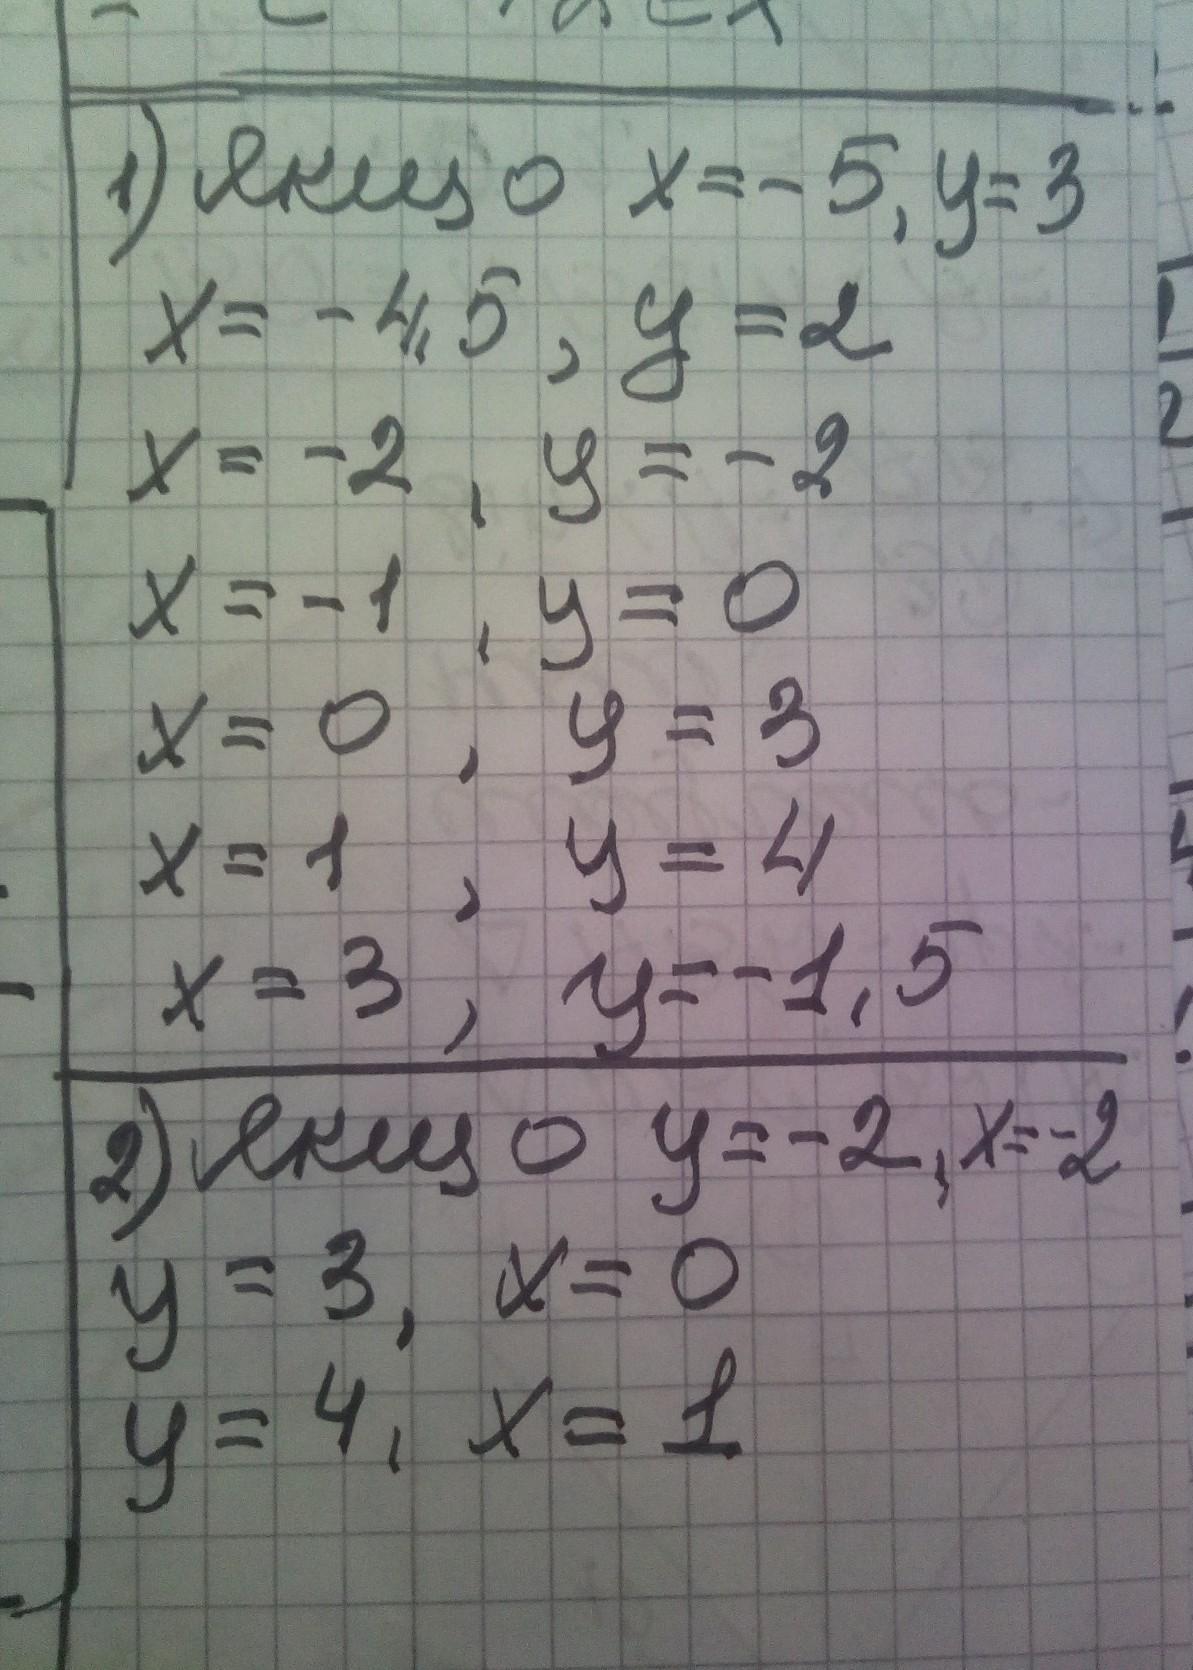 1) Якщо x=-5, y=3
x=-4,5, y=2
x=-2, y=-2
x=-1, y=0
x=0, y=3
x=1, y=4
x=3, y=-1,5
2) Якщо y=-2, x=-2
y=3, x=0
y=4, x=1